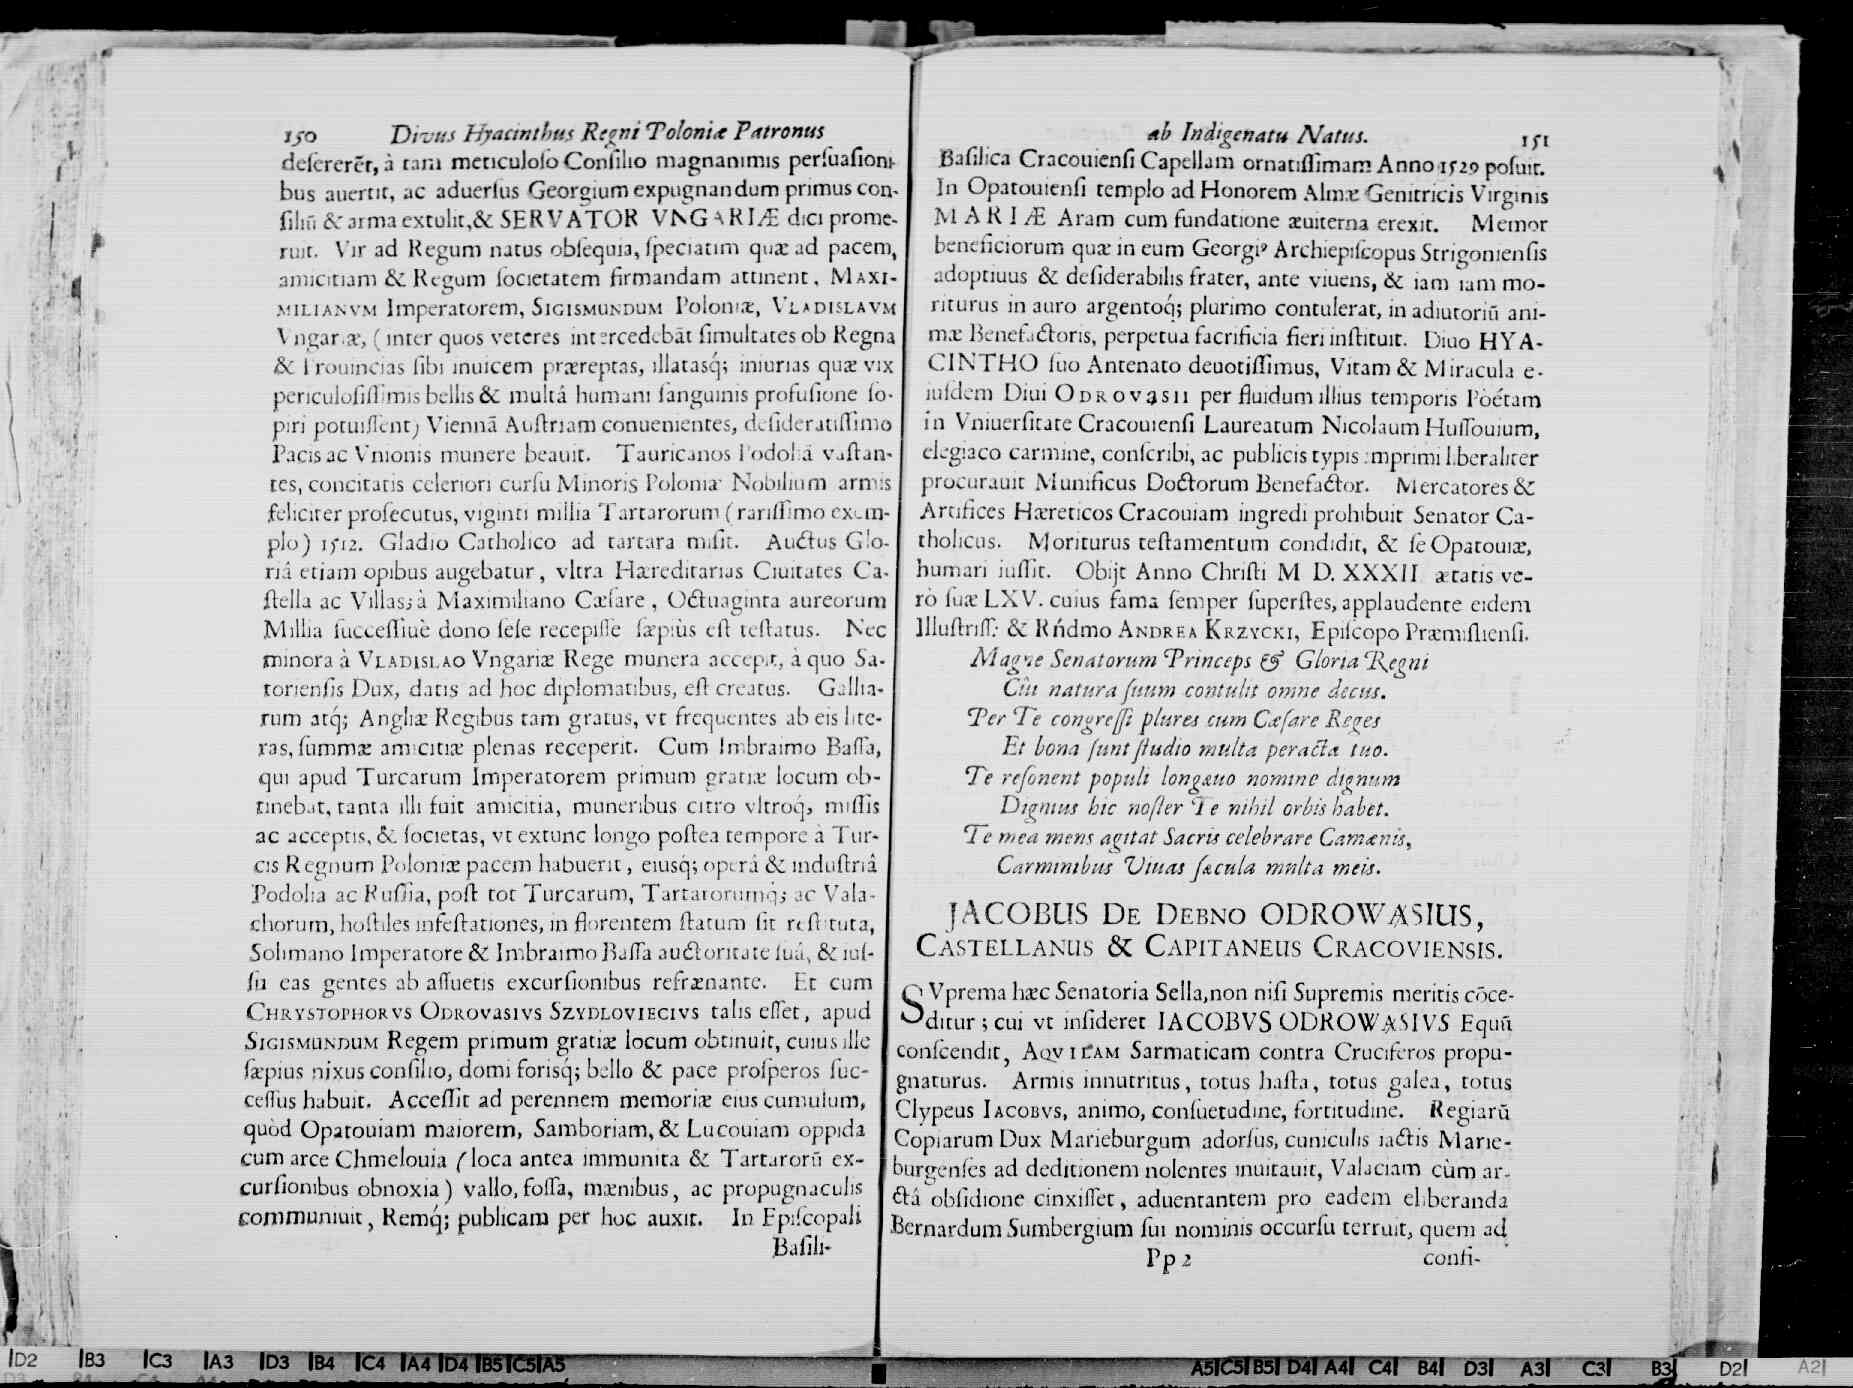 150 Divus Hyacinthus Regni Poloniæ Patronus
desererēt, à tam meticuloso Consilio magnanimis persuasioni-
bus auertit, ac aduersus Georgium expugnandum primus con-
siliū & arma extulit, & SERVATOR VNGARIÆ dici prome-
ruit. Vir ad Regum natus obsequia, speciatim quæ ad pacem,
amicitiam & Regum societatem firmandam attinent, MAXI-
MILIANVM Imperatorem, SIGISMUNDUM Poloniæ, VLADISLAVM
Vngariæ, (inter quos veteres intercedebāt simultates ob Regna
& Prouincias sibi inuicem præreptas, illatasq́; iniurias quæ vix
periculosissimis bellis & multâ humani sanguinis profusione so-
piri potuissent) Viennā Austriam conuenientes, desideratissimo
Pacis ac Vnionis munere beauit. Tauricanos Podoliā vastan-
tes, concitatis celeriori cursu Minoris Poloniæ Nobilium armis
feliciter prosecutus, viginti millia Tartarorum (rarissimo exem-
plo) 1512. Gladio Catholico ad tartara misit. Auctus Glo-
riâ etiam opibus augebatur, vltra Hæreditarias Ciuitates Ca-
stella ac Villas; à Maximiliano Cæsare, Octuaginta aureorum
Millia successiuè dono sese recepisse sæpiùs est testatus. Nec
minora à VLADISLAO Vngariæ Rege munera accepit, à quo Sa-
toriensis Dux, datis ad hoc diplomatibus, est creatus. Gallia-
rum atq́; Angliæ Regibus tam gratus, vt frequentes ab eis lite-
ras, summæ amicitiæ plenas receperit. Cum Imbraimo Bassa,
qui apud Turcarum Imperatorem primum gratiæ locum ob-
tinebat, tanta illi fuit amicitia, muneribus citro vltroq́, missis
ac acceptis, & societas, vt extunc longo postea tempore à Tur-
cis Regnum Poloniæ pacem habuerit, eiusq́; operâ & industriâ
Podolia ac Russia, post tot Turcarum, Tartarorumq́; ac Vala-
chorum, hostiles infestationes, in florentem statum sit restituta,
Solimano Imperatore & Imbraimo Bassa auctoritate suâ, & ius-
su eas gentes ab assuetis excursionibus refrænante. Et cum
CHRYSTOPHORVS ODROVASIVS SZYDLOVIECIVS talis esset, apud
SIGISMUNDUM Regem primum gratiæ locum obtinuit, cuius ille
sæpius nixus consilio, domi forisq́; bello & pace prosperos suc-
cessus habuit. Accessit ad perennem memoriæ eius cumulum,
quòd Opatouiam maiorem, Samboriam, & Lucouiam oppida
cum arce Chmelouia (loca antea immunita & Tartarorū ex-
cursionibus obnoxia) vallo, fossa, mænibus, ac propugnaculis
communiuit, Remq́; publicam per hoc auxit. In Episcopali
Basili-
ab Indigenatu Natus. 151
Basilica Cracouiensi Capellam ornatissimam Anno 1529 posuit.
In Opatouiensi templo ad Honorem Almæ Genitricis Virginis
MARIÆ Aram cum fundatione æuiterna erexit. Memor
beneficiorum quæ in eum Georgiꝰ Archiepiscopus Strigoniensis
adoptiuus & desiderabilis frater, ante viuens, & iam iam mo-
riturus in auro argentoq́; plurimo contulerat, in adiutoriū ani-
mæ Benefactoris, perpetua sacrificia fieri instituit. Diuo HYA-
CINTHO suo Antenato deuotissimus, Vitam & Miracula e-
iusdem Diui ODROVASII per fluidum illius temporis Poétam
in Vniuersitate Cracouiensi Laureatum Nicolaum Hussouium,
elegiaco carmine, conscribi, ac publicis typis imprimi liberaliter
procurauit Munificus Doctorum Benefactor. Mercatores &
Artifices Hæreticos Cracouiam ingredi prohibuit Senator Ca-
tholicus. Moriturus testamentum condidit, & se Opatouiæ,
humari iussit. Obijt Anno Christi M D. XXXII ætatis ve-
rò suæ LXV. cuius fama semper superstes, applaudente eidem
Illustriss: & Rńdmo ANDREA KRZYCKI, Episcopo Præmisliensi.
Magne Senatorum Princeps & Gloria Regni
Cui natura suum contulit omne decus.
Per Te congressi plures cum Cæsare Reges
Et bona sunt studio multa peracta tuo.
Te resonent populi longæuo nomine dignum
Dignius hic noster Te nihil orbis habet.
Te mea mens agitat Sacris celebrare Camænis,
Carminibus Viuas sæcula multa meis.
JACOBUS DE DEBNO ODROWASIUS,
CASTELLANUS & CAPITANEUS CRACOVIENSIS.
SVprema hæc Senatoria Sella, non nisi Supremis meritis cōce-
ditur; cui vt insideret IACOBVS ODROWASIVS Equū
conscendit, AQVILAM Sarmaticam contra Cruciferos propu-
gnaturus. Armis innutritus, totus hasta, totus galea, totus
Clypeus IACOBVS, animo, consuetudine, fortitudine. Regiarū
Copiarum Dux Marieburgum adorsus, cuniculis iactis Marie-
burgenses ad deditionem nolentes inuitauit, Valaciam cùm ar-
ctâ obsidione cinxisset, aduentantem pro eadem eliberanda
Bernardum Sumbergium sui nominis occursu terruit, quem ad
Pp 2 consi-
D2 B3 C3 A3 D3 B4 C4 A4 D4 B5 C5 A5
A5 C5 B5 D4 A4 C4 B4 D3 A3 C3 B3 D2 A2